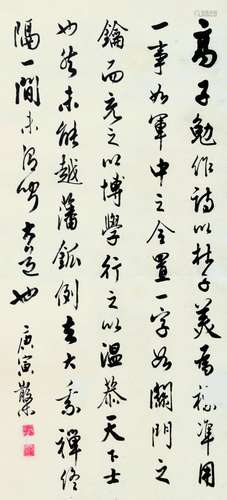 高子勉作詩以杜子美為標準用
一事如軍中之令置一字如關門之
鑰而充之以博學行之以溫恭天下士
也然未能越藩倒在大乘禪終
隔一間未得聞大道也
庚寅